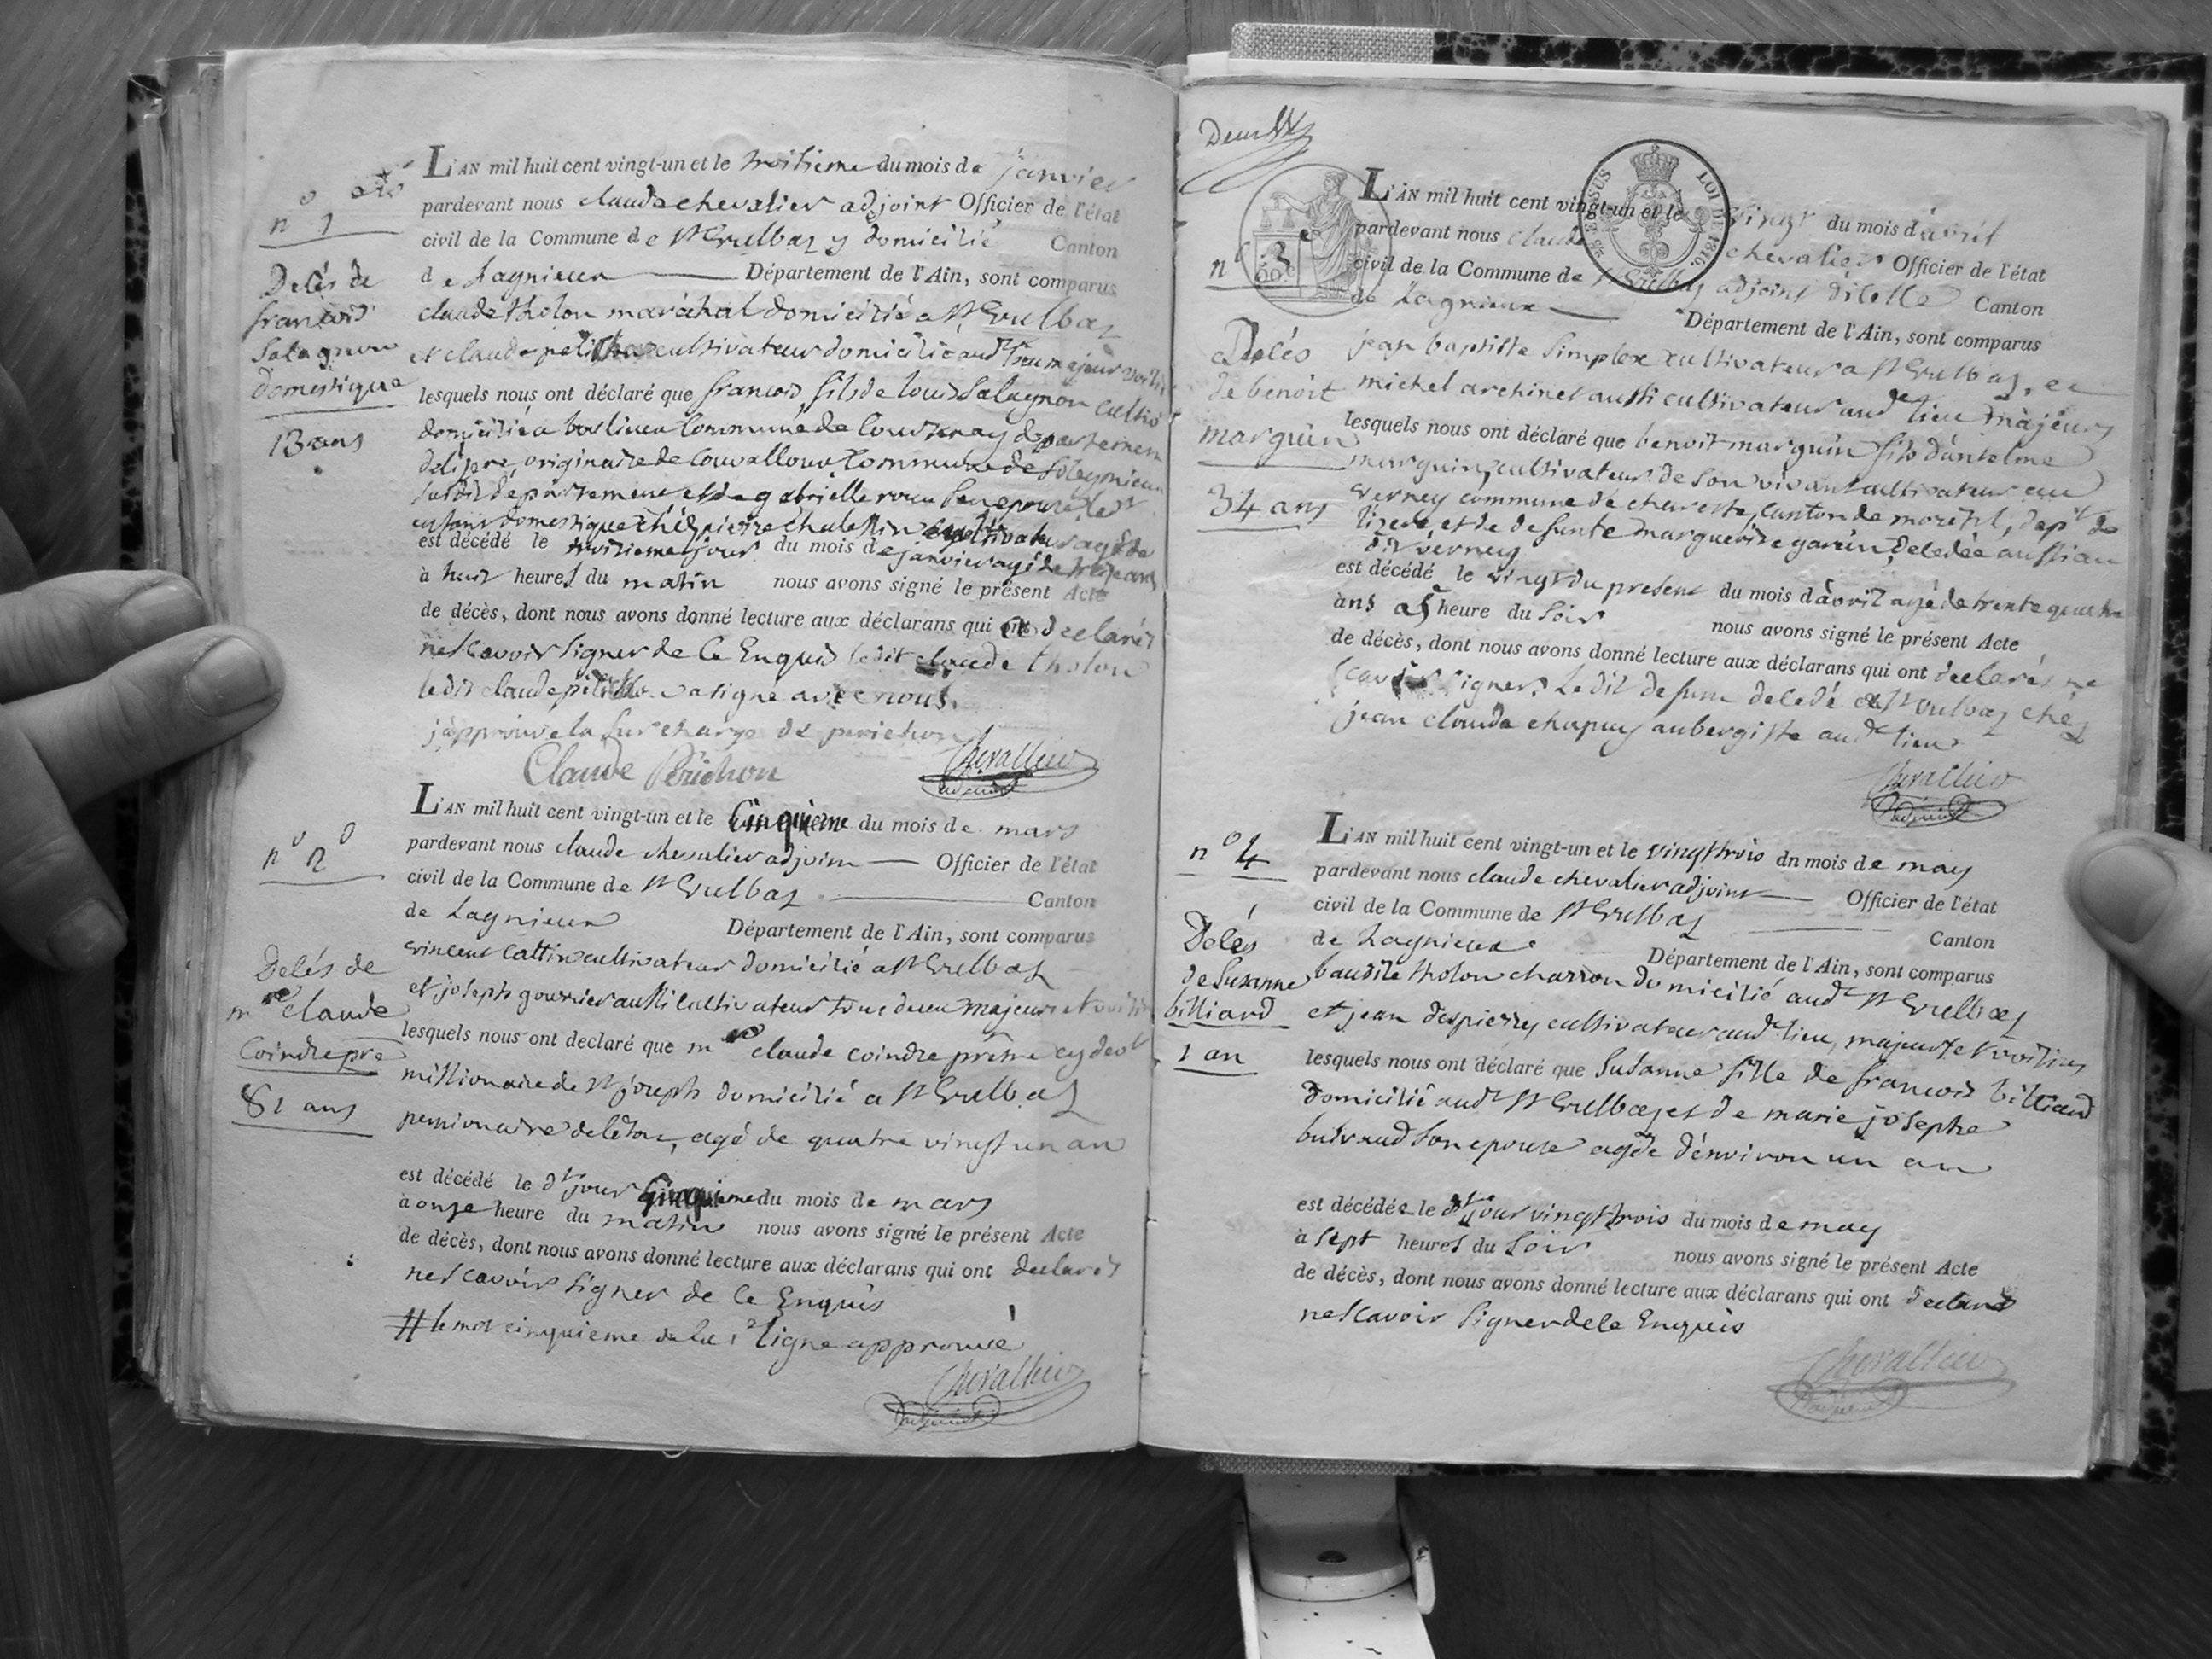 n° 1
Decés de
francois
Salagnon
domestique
13 ans
L'AN mil huit cent vingt-un et le troisieme du mois de janvier
pardevant nous claude chevalier adjoint Officier de l'état
civil de la Commune de st Vulbaz y domicilié Canton
de Lagnieux Département de l'Ain, sont comparus
claude tholon maréchal domicilié a st Vulbaz
et claude cultivateur domicilié audt lieu majeurs
lesquels nous ont déclaré que francois fils de louis Salagnon
domicilié a commune de Courtenay departement
delisere, originaire de commune de Soleymieux
susdit departement et de gabrielle roux son epouse
enfant domestique chés pierre cultivateur agé de
est décédé le troisieme jour du mois de janvier agé de treize ans
à huit heures du matin nous avons signé le présent Acte
de décès, dont nous avons donné lecture aux déclarans qui ont declarés
ne scavoir signer de ce Enquis ledit claude tholon
le dit claude a signé avec nous.
j'approuve la surcharge de perichon
Claude Périchon
Chevallier
adjoint
n° 2
Decés de
mre claude
Coindre pre
81 ans
L'AN mil huit cent vingt-un et le Cinquieme du mois de mars
pardevant nous claude chevalier adjoint Officier de l'état
civil de la Commune de st Vulbaz Canton
de Lagnieux Département de l'Ain, sont comparus
vincent cattin cultivateur domicilié a st Vulbaz
et joseph gourrier aussi cultivateur tous deux majeurs et
lesquels nous ont declaré que mre claude coindre prêtre cydevt
missionaire de st joseph domicilié a st Vulbaz
pensionaire deletat, agé de quatre vingt un an
est décédé le dt jour Cinquieme du mois de mars
à onze heure du matin nous avons signé le présent Acte
de décès, dont nous avons donné lecture aux déclarans qui ont declarés
ne scavoir signer de ce Enquis
# le mot cinquieme de la 1e ligne approuvé
Chevallier
adjoint
Deux
n° 3
Decés
de benoit
marguin
34 ans
L'AN mil huit cent vingt-un et le vingt du mois d'avril
pardevant nous claude chevalier Officier de l'état
civil de la Commune de st Vulbaz adjoint dicelle Canton
de Lagnieux Département de l'Ain, sont comparus
jean baptiste simplex cultivateur a st Vulbaz, et
michel archinet aussi cultivateur audt lieu majeurs
lesquels nous ont déclaré que benoit marguin fils d'antelme
marguin, cultivateur de son vivant cultivateur au
verney commune de charette, canton de morestel, dept de
lizere et de defunte marguerite garin decedée aussi au
dit verney
est décédé le vingt du present du mois d'avril agé de trente quatre
ans a 5 heure du soir nous avons signé le présent Acte
de décès, dont nous avons donné lecture aux déclarans qui ont declarés ne
scavoir signer. Le dit defunt decedé a st vulbaz chés
jean claude chapuy aubergiste audt lieu
Chevallier
adjoint
n° 4
Decés
de Susanne
billiard
1 an
L'AN mil huit cent vingt-un et le vingt trois dn mois de may
pardevant nous claude chevalier adjoint Officier de l'état
civil de la Commune de st Vulbaz Canton
de Lagnieux Département de l'Ain, sont comparus
baudile tholon charron domicilié audt st Vulbaz
et jean despierry cultivateur audt lieu, majeurs et voisins
lesquels nous ont déclaré que Susanne fille de francois billiard
domicilié audt st Vulbaz et de marie josephe
buivraud son epouse agée d'environ un an
est décédée le dt jour vingt trois du mois de may
à sept heures du soir nous avons signé le présent Acte
de décès, dont nous avons donné lecture aux déclarans qui ont declaré
ne scavoir signer de ce Enquis
Chevallier
adjoint